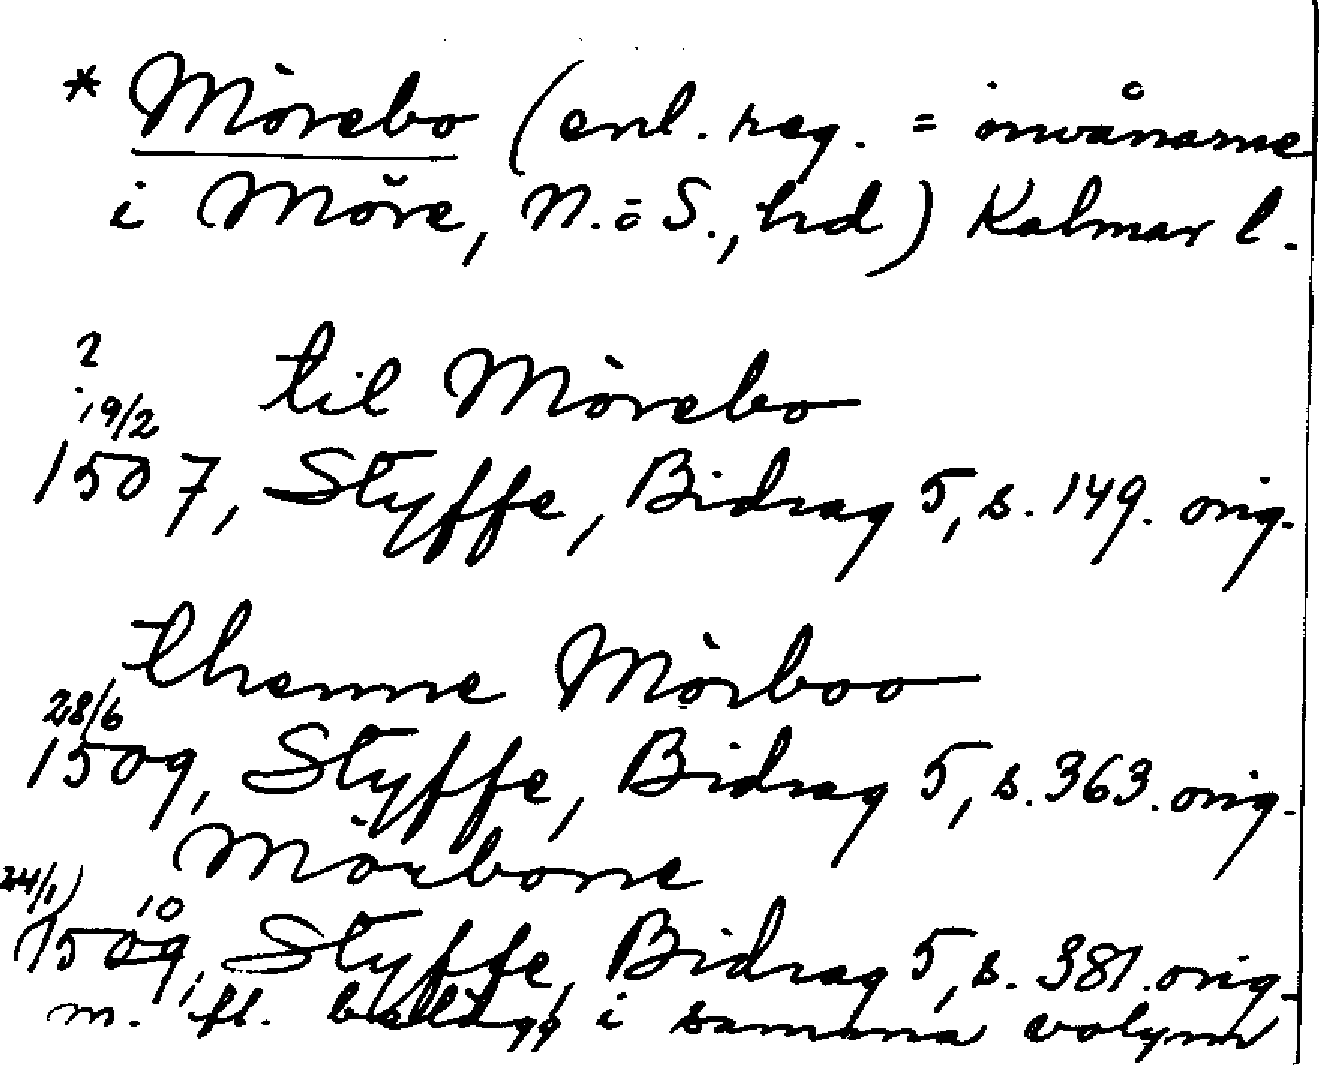 * Mörebo (enl. reg. = invånarne
i Möre, N. o S., hd) Kalmar l.
2
19/2 til Mörebo
1507, Styffe, Bidrag 5, s. 149. orig.
thenne Mörboo
28/6
1509, Styffe, Bidrag 5, s. 363. orig.
Mörbone
24/1) 10
(1509, Styffe, Bidrag 5, s. 381. orig.
m. fl. belägg i samma volym